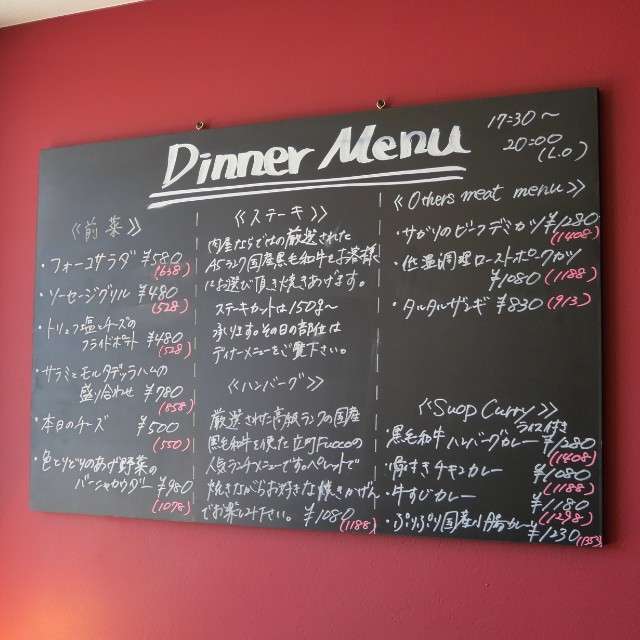 Dinner Menu
17:30～
20:00
(L.O)
《前菜》
・フォーコサラダ ¥580
(638)
・ソーセージグリル ¥480
(528)
・トリュフ塩とチーズの
フライドポテト ¥480
(528)
・サラミとモルタデッラハムの
盛り合わせ ¥780
(858)
・本日のチーズ ¥500
(550)
・色とりどりのあげ野菜の
バーニャカウダー ¥980
(1078)
《ステーキ》
肉屋ならではの厳選された
A5ランク国産黒毛和牛をお客様
にお選び頂き焼きあげます。
ステーキカットは150g～
承ります。その日の部位は
ディナーメニューをご覧下さい。
《ハンバーグ》
厳選された高級ランクの国産
黒毛和牛を使た立町Fuocoの
人気ランチメニューです。パレットで
焼きながらお好きな焼きかげん
でお楽しみ下さい。 ¥1080
(1188)
《Others meat menu》
・サガリのビーフデミカツ ¥1280
(1408)
・低温調理ローストポークカツ
¥1080 (1188)
・タルタルザンギ ¥830 (913)
《Suop Curry》
ライス付き
・黒毛和牛ハンバーグカレー ¥1280
(1408)
・骨付きチキンカレー ¥1080
(1188)
・牛すじカレー ¥1180
(1298)
・ぷりぷり国産小腸カレー
¥1230 (1353)